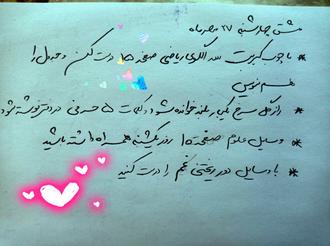 مشق چهارشنبه ۲۷ مهرماه
* با چوب کبریت سه الگوی ریاضی صفحه ۱۵ درست کن و جدول را
هم بنویس
* از گل سرخ یکبار بلند خوانده شود و کلمات ۵ حرفی در دفتر نوشته شود
* وسایل علوم صفحه ۱۵ روز یکشنبه همراه داشته باشید
* با وسایل دور ریختنی را درست کنید